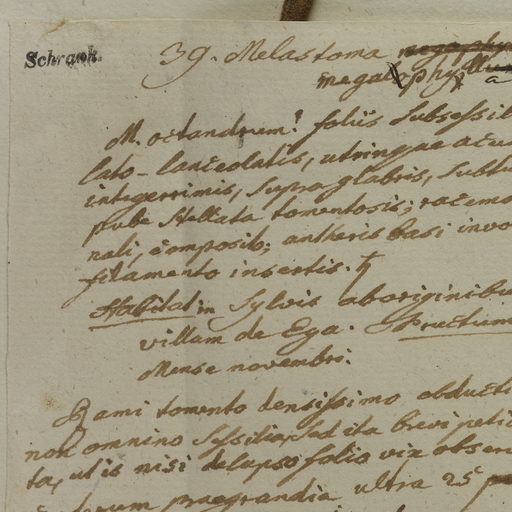 Schrank.
39. Melastoma
M. octandrum! foliis subsessil
lato-lanceolatis, utrinque acu
integerrimis, supra glabris, subtu
pube stellata tomentosis; racemo
nali, composito; antheris basi invo
filamento insertis. ♄
Habitat in Sylvis aboriginibu
villam de Ega. Fructum
Mense novembri.
Rami tomento densissimo obducti
non omnino sessilia, sed ita brevi petio
ta, ut is nisi delapso folio vix obser
praegrandia ultra 25